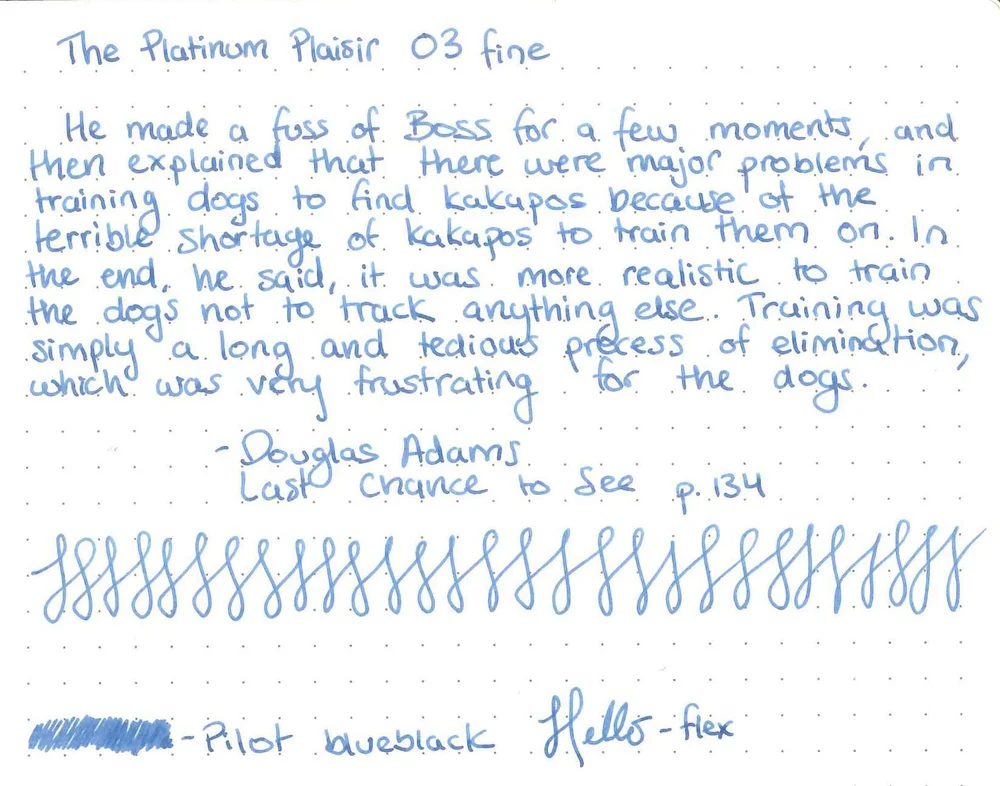 The Platinum Plaisir 03 fine
He made a fuss of Boss for a few moments, and
then explained that there were major problems in
training dogs to find kakapos because of the
terrible shortage of kakapos to train them on. In
the end, he said, it was more realistic to train
the dogs not to track anything else. Training was
simply a long and tedious process of elimination,
which was very frustrating for the dogs.
- Douglas Adams
Last Chance to See p. 134
- Pilot blueblack Hello - flex